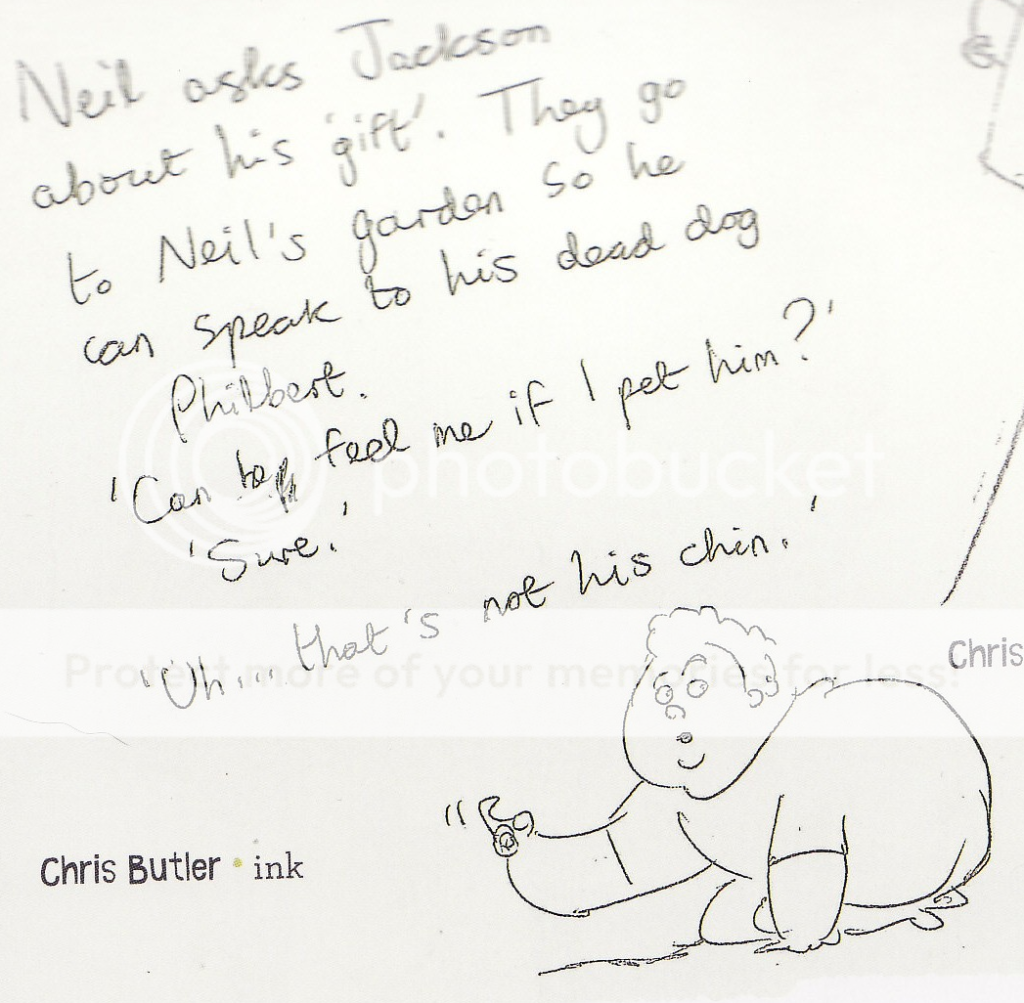 Neil asks Jackson
about his 'gift'. They go
to Neil's garden so he
can speak to his dead dog
Philbert.
'Can he feel me if I pet him?'
'Sure.'
'Uh... that's not his chin.'
photobucket
Protect more of your memories for less!
Chris
Chris Butler • ink